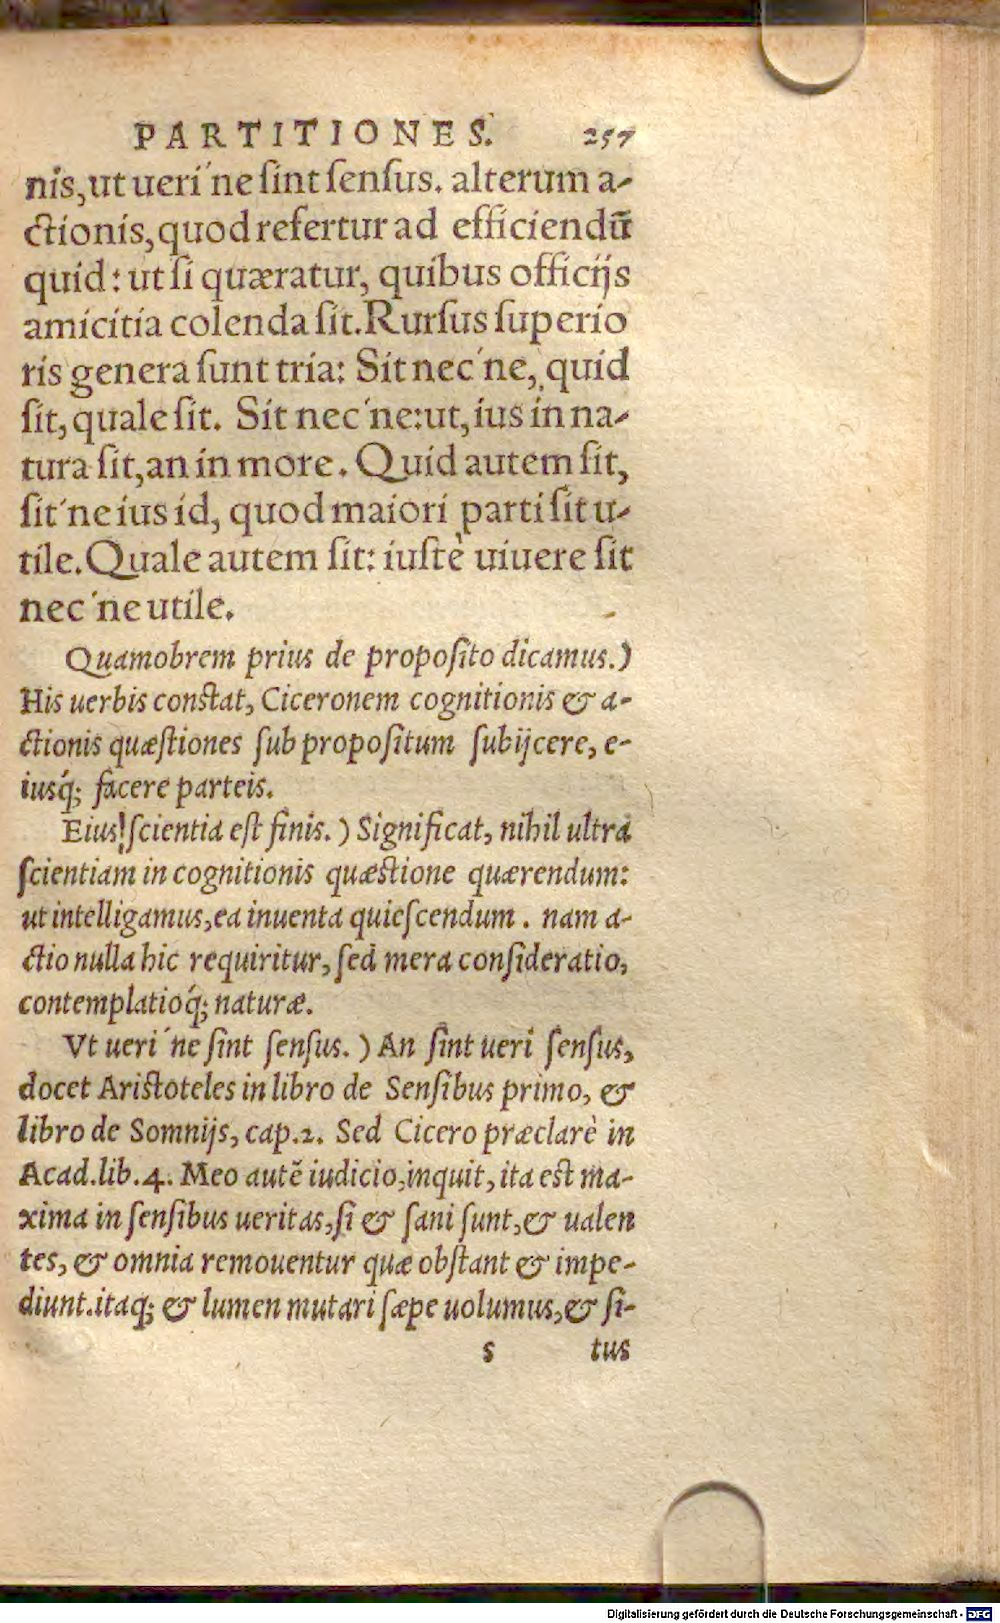 PARTITIONES. 257
nis, ut ueri´ne ſint ſenſus. alterum a-
ctionis, quod refertur ad efficiendũ
quid: ut ſi quæratur, quibus officijs
amicitia colenda ſit. Rurſus ſuperio
ris genera ſunt tria: Sit nec´ne, quid
ſit, quale ſit. Sit nec´ne: ut, ius in na-
tura ſit, an in more. Quid autem ſit,
ſit´ne ius id, quod maiori parti ſit u-
tile. Quale autem ſit: iuſtè uiuere ſit
nec´ne utile.
Quamobrem prius de propoſito dicamus.)
His uerbis conſtat, Ciceronem cognitionis & a-
ctionis quæſtiones ſub propoſitum ſubijcere, e-
iusq́; facere parteis.
Eius ſcientia eſt finis.) Significat, nihil ultra
ſcientiam in cognitionis quæſtione quærendum:
ut intelligamus, ea inuenta quieſcendum. nam a-
ctio nulla hic requiritur, ſed mera conſideratio,
contemplatioq́; naturæ.
Vt ueri´ne ſint ſenſus.) An ſint ueri ſenſus,
docet Ariſtoteles in libro de Senſibus primo, &
libro de Somnijs, cap.2. Sed Cicero præclarè in
Acad.lib.4. Meo autẽ iudicio, inquit, ita eſt ma-
xima in ſenſibus ueritas, ſi & ſani ſunt, & ualen
tes, & omnia remouentur quæ obſtant & impe-
diunt. itaq; & lumen mutari ſæpe uolumus, & ſi-
s tus
Digitalisierung gefördert durch die Deutsche Forschungsgemeinschaft - DFG